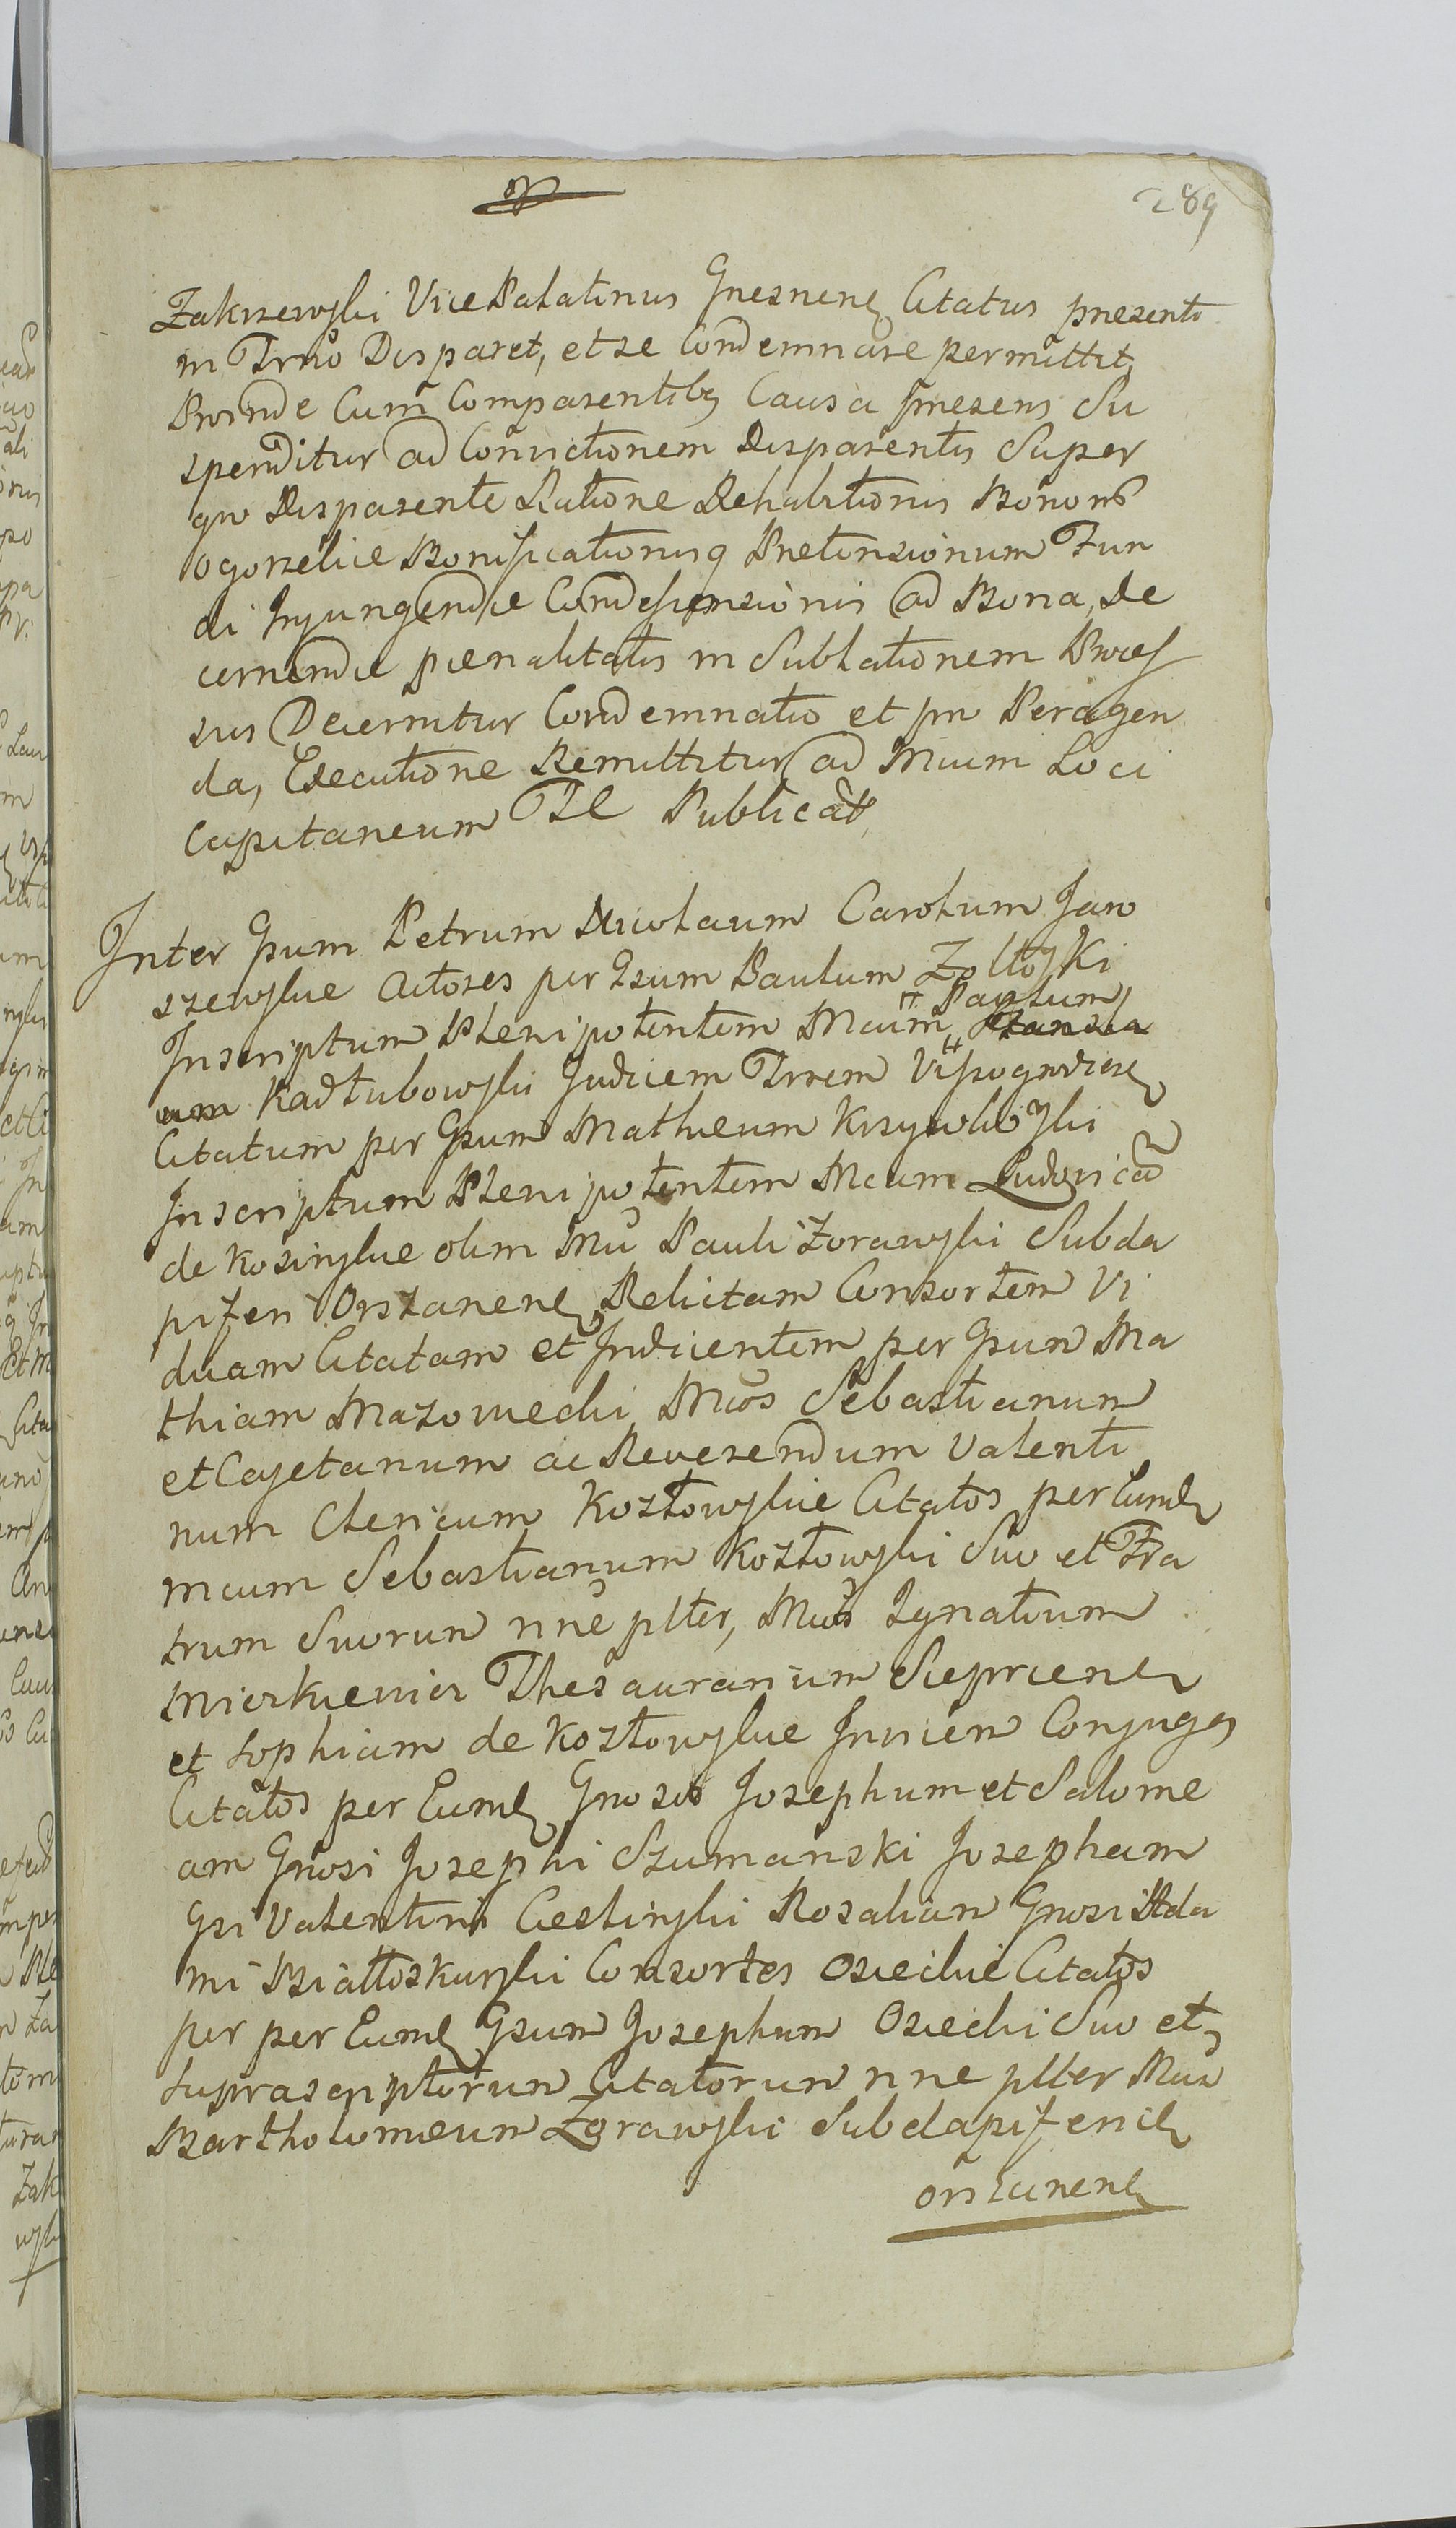 289
Zakrzewski Vice Palatinus Gnesnens Citatus presenti
in Trno Disparet, et se Condemnare permittit,
Proinde Cum Comparentibs Causa presens Su
spenditur ad Convictionem Disparentis Super
quo Disparente Ratione Rehabitionis Bonorum
ogorzelice Bonificationisq Pretensionum Fun
di Injungendæ Condescensionis ad Bona, De
cernendæ pænalitatis in Sublationem Proces
sus Decernitur Condemnatio et pro Peragen
da, Executione Remittitur ad Mcum Loci
Capitaneum Publicat
Inter Gsum Petrum Nicolaum Carolum Jaro
szewskie Actores per Gsum Paulum Zoltoski
Inscriptum Plenipotentem Mcum Paulum
am Kadłubowski Judicem Trrem Vissogrodiens
Citatum per Gsum Matheum
Inscriptum Plenipotentem Mcam Ludovicã
de Kosinskie olim Mci Pauli Zorawski Subda
piferi Orszanens Relictam Consortem Vi
duam Citatam et Indicentem per Gsum Ma
thiam Mazowiecki Mcos Sebastianum
et Cajetanum ac Reverendum Valenti
num Clericum Kozłowskie Citatos per Eund
mcum Sebastianum Kozłowski Suo et Fra
trum Suorum nne plter, Mcos Ignatium
Mierkiewicz Thesaurarium Sieprcens
et Sophiam de Kozłowskie Invicem Conjuges
Citatos per Eund Gnosos Josephum et Salome
am Gnosi Josephi Szumanski Josepham
Gsi Valentini Ciestinski Rosaliam Gnosi Ada
mi Białłoskurski Consortes Osieckie Citatos
per per Eund Gsum Josephum Osiecki Suo et
Suprascriptorum Citatorum nne plter Mcum
Bartholomeum Zorawski Subdapiferid
orszanens